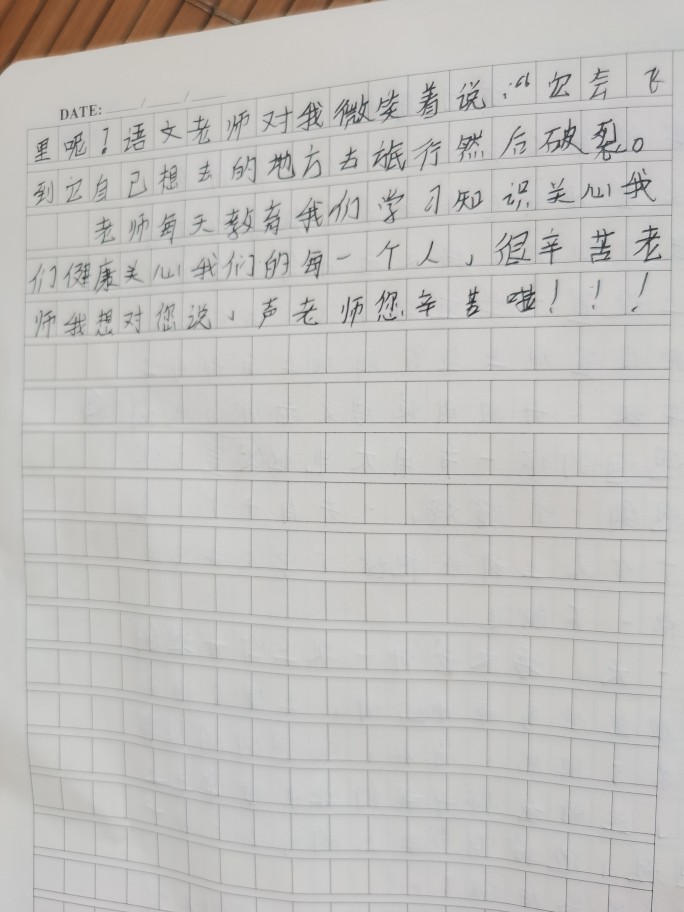 DATE: / /
里呢？语文老师对我微笑着说：“它会飞
到它自己想去的地方去旅行然后破裂。
老师每天教育我们学习知识关心我
们健康关心我们的每一个人，很辛苦老
师我想对您说，声老师您辛苦啦！！！